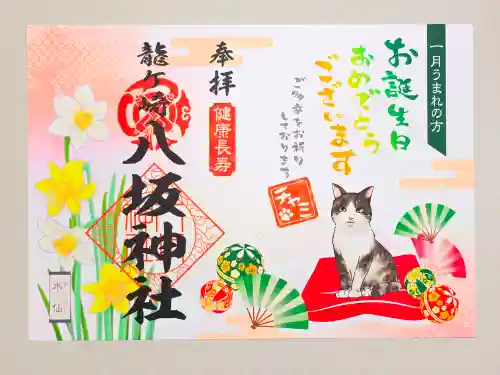 一月うまれの方
お誕生日
おめでとう
ございます
ご多幸をお祈り
しております
奉拝
健康長寿
龍ケ崎
八坂神社
水仙